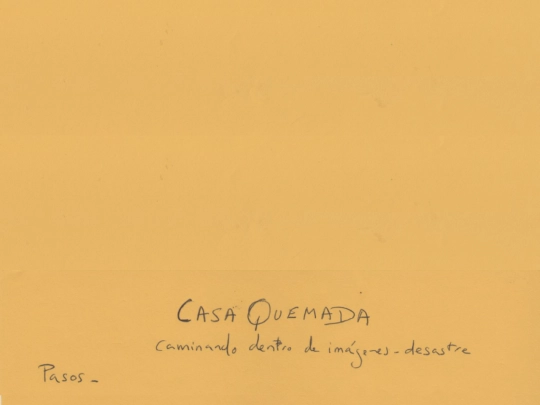 CASA QUEMADA
caminando dentro de imágenes-desastre
Pasos-